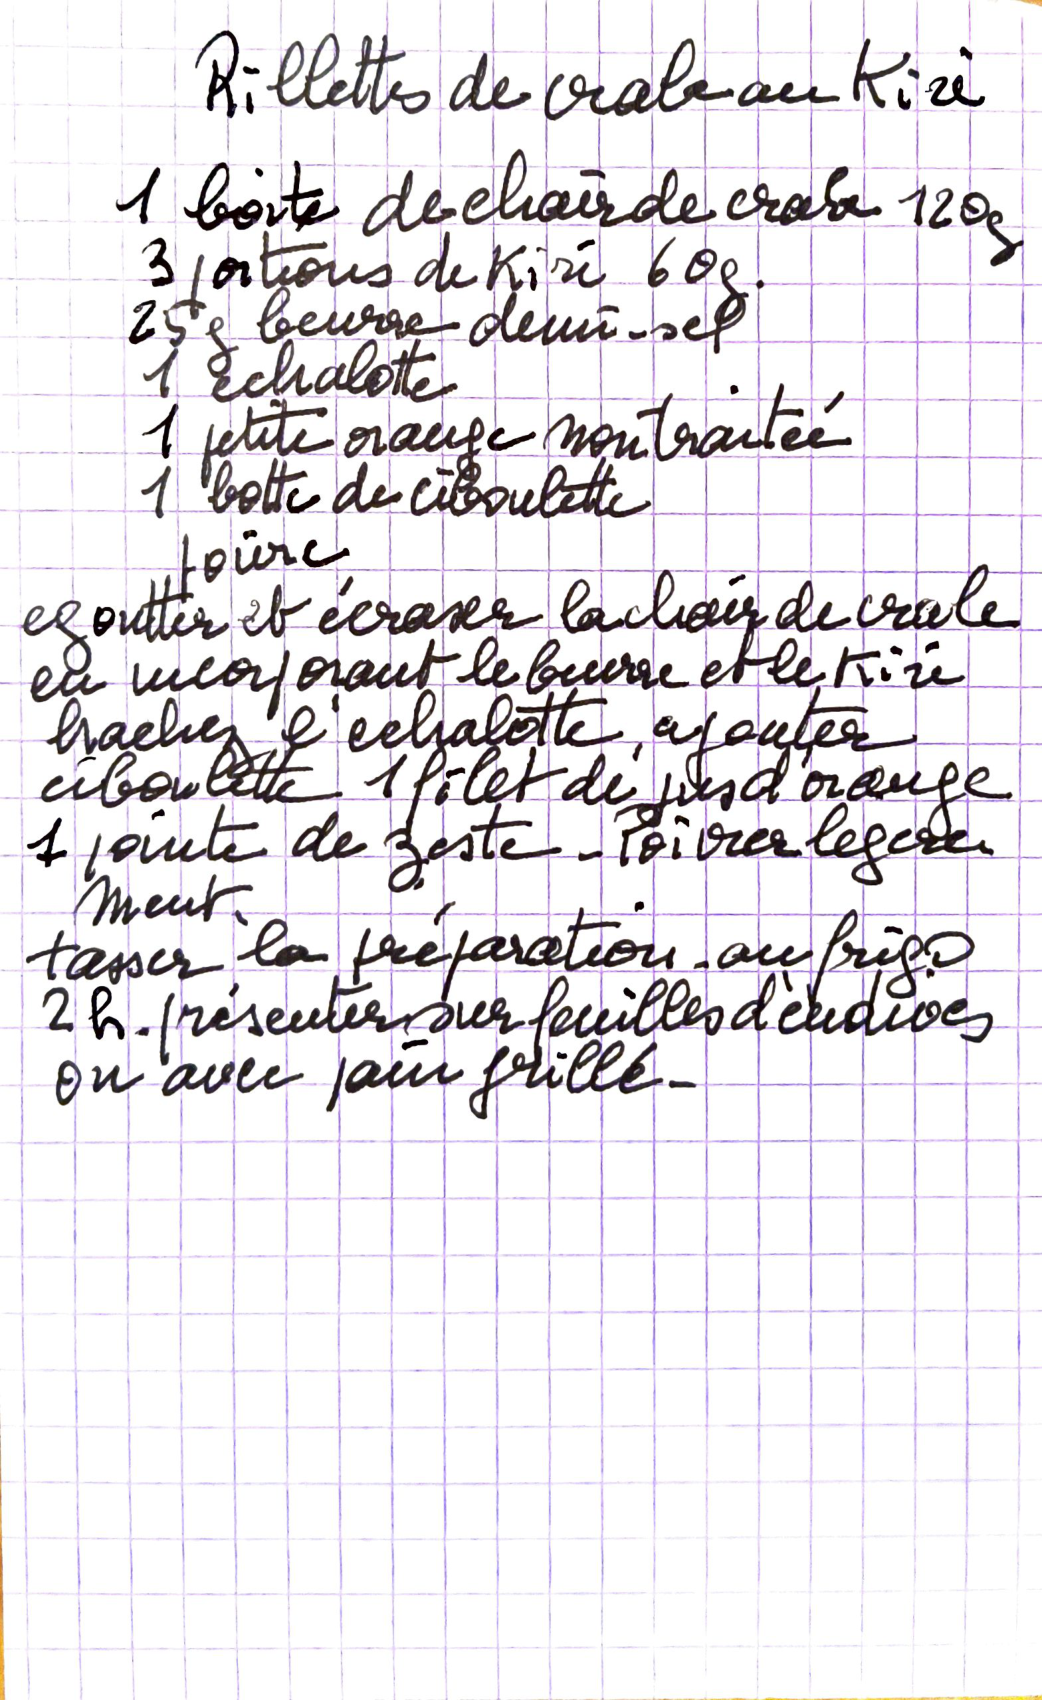 Rillettes de crabe au Kiri
1 boite de chair de crabe 120g
3 portions de Kiri 60g.
25g beurre demi-sel
1 echalotte
1 petite orange non traitée
1 botte de ciboulette
poivre
egoutter et écraser la chair de crabe
en incorporant le beurre et le Kiri
hachez l'echalotte, ajouter
ciboulette 1 filet de jus d'orange
1 pointe de zeste - Poivrer legere
ment.
tasser la préparation - au frigo
2h. présenter sur feuilles d'endives
ou avec pain grillé -